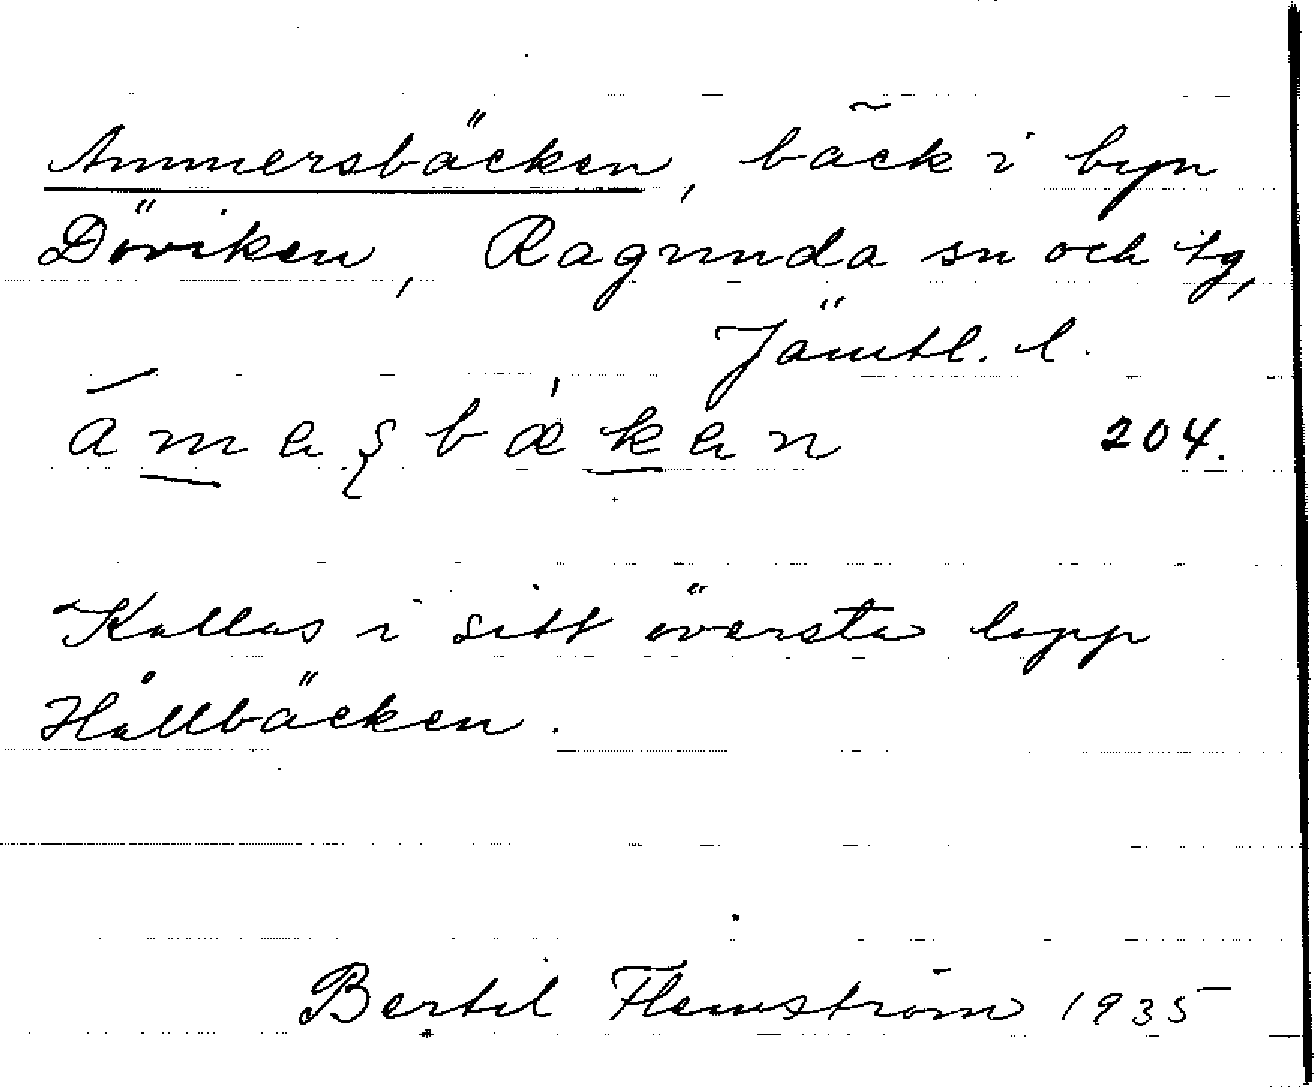 Ammersbäcken, bäck i byn
Döviken, Ragunda sn och tg,
Jämtl. l.
204.
Kallas i sitt översta lopp
Hållbäcken.
Bertil Flemström 1935